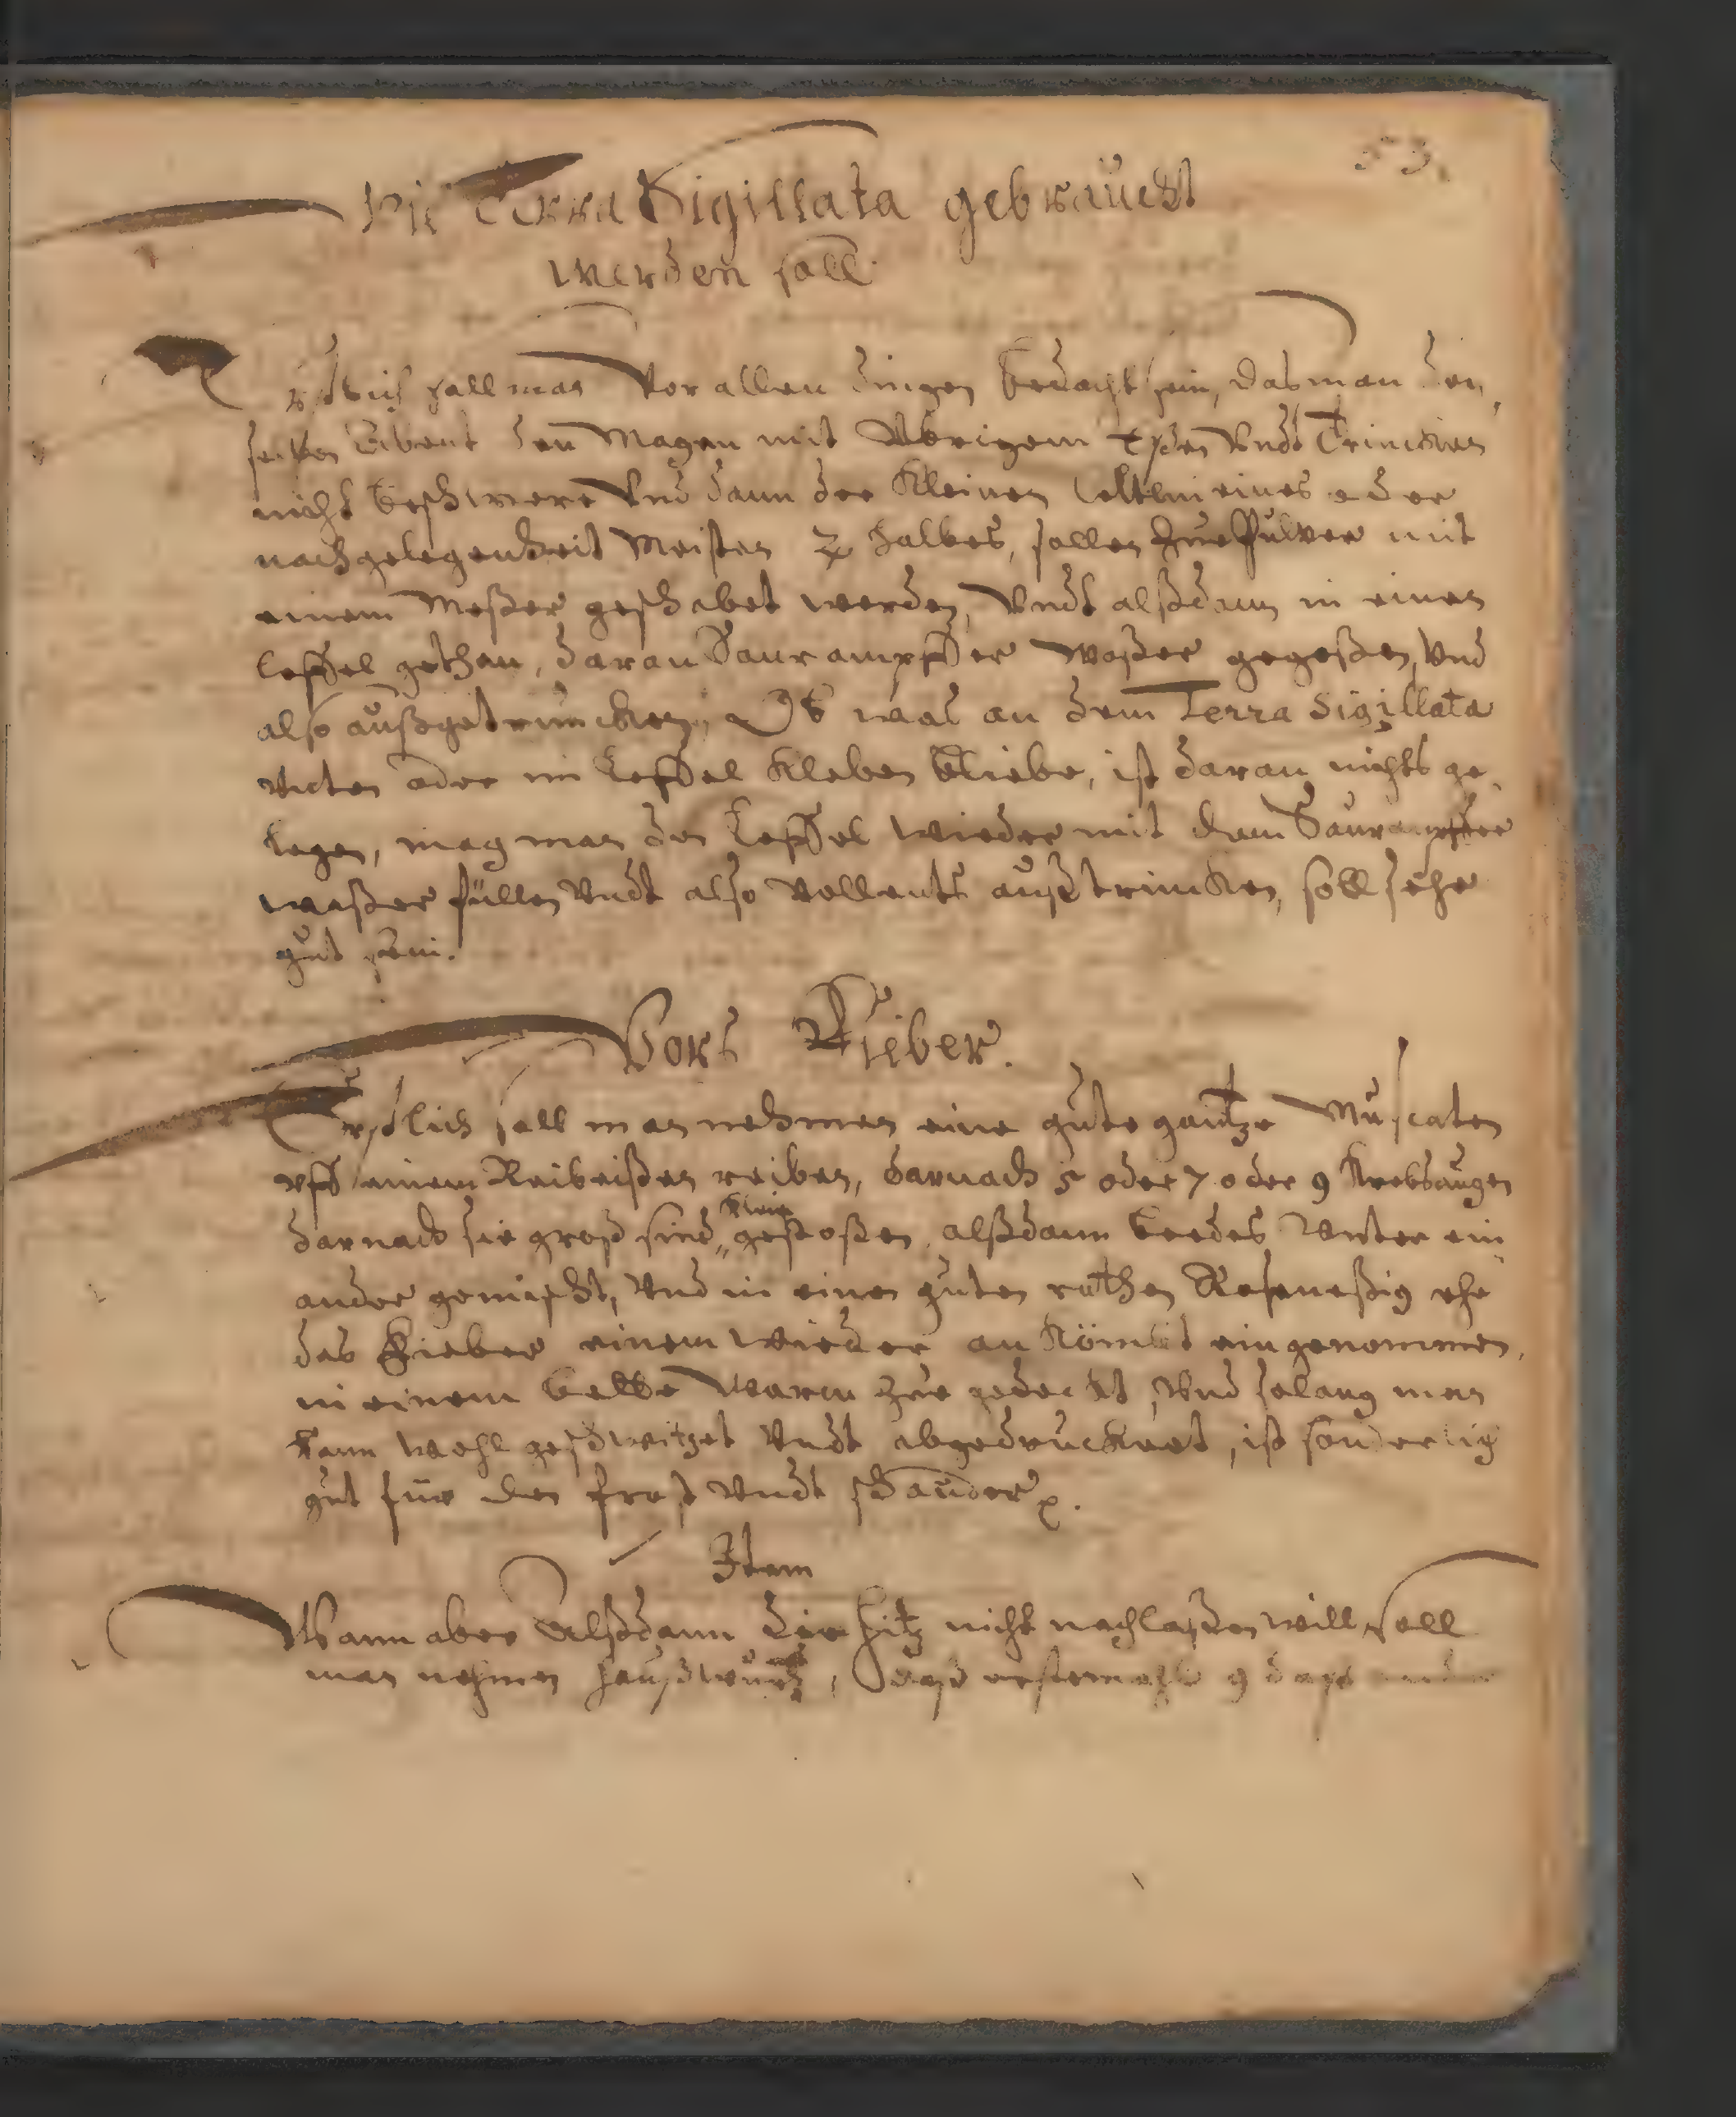 53.
Wie Terra Sigillata gebraucht
werden soll.
Erstlich soll man Vor allen dingen bedacht sein, das man den,
selben Abent den Magen mit Übrigem Essen Undt Trincken
nicht beschwere Und dann der Kleinen Zeltlein eines oder
nach gelegenheit Meisten halbes, sollen Zue Pulver mit
einem Meßer geschabet werden, Undt alßdann in einen
Leffel gethan, daran Saurampffer Waßer gegoßen, Und
also außgetruncken, Ob was an dem Terra Sigillata
Unten oder im Leffel Kleben bliebe, ist daran nichts ge,
legen, mag man den Leffel Wieder mit dem Saurampffer
waßer füllen Undt also Vollents außtrincken, soll sehr
gut sein.
Vors Fieber.
Erstlich soll man nehmen eine gute gantze Muscaten
uff einem Reibeißen reiben, darnach 5 oder 7 oder 9 Krebsaugen
darnach sie groß sind klein gestoßen, alßdann beedes Unter ein,
ander gemischt, Und in einen guten rothen Roseneßig ehe
das Fieber einem Wieder an Kömbt eingenommen,
in einem bette Warm Zue gedeckt, Und solang man
kann Wohl geschwitzet Undt abgedrucknet, ist sonderlich
gut für den frost Undt schauder.
Item
Wann aber Alßdann Die hitz nicht nachlaßen will soll
man nehmen haußwurtz, daß erstemahl 9 daß ander